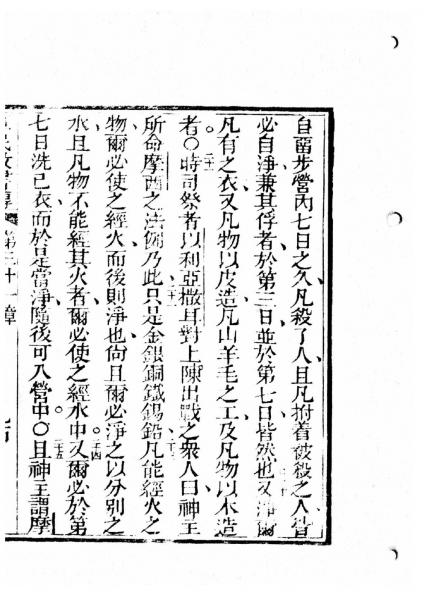 自留步營內七日之久凡殺了人且凡拊着被殺之人皆
必自淨兼其俘者於第三日並於第七日皆然也又淨爾
凡有之衣又凡物以皮造凡山羊毛之工及凡物以木造
者○時司祭者以利亞撒耳對上陳出戰之衆人曰神主
所命摩西之法例乃此只是金銀銅鐵錫鉛凡能經火之
物爾必使之經火而後則淨也尙且爾必淨之以分別之
水且凡物不能經其火者爾必使之經水中又爾必於第
七日洗已衣而於是當淨隨後可入營中○且神主謂摩
第三十一章